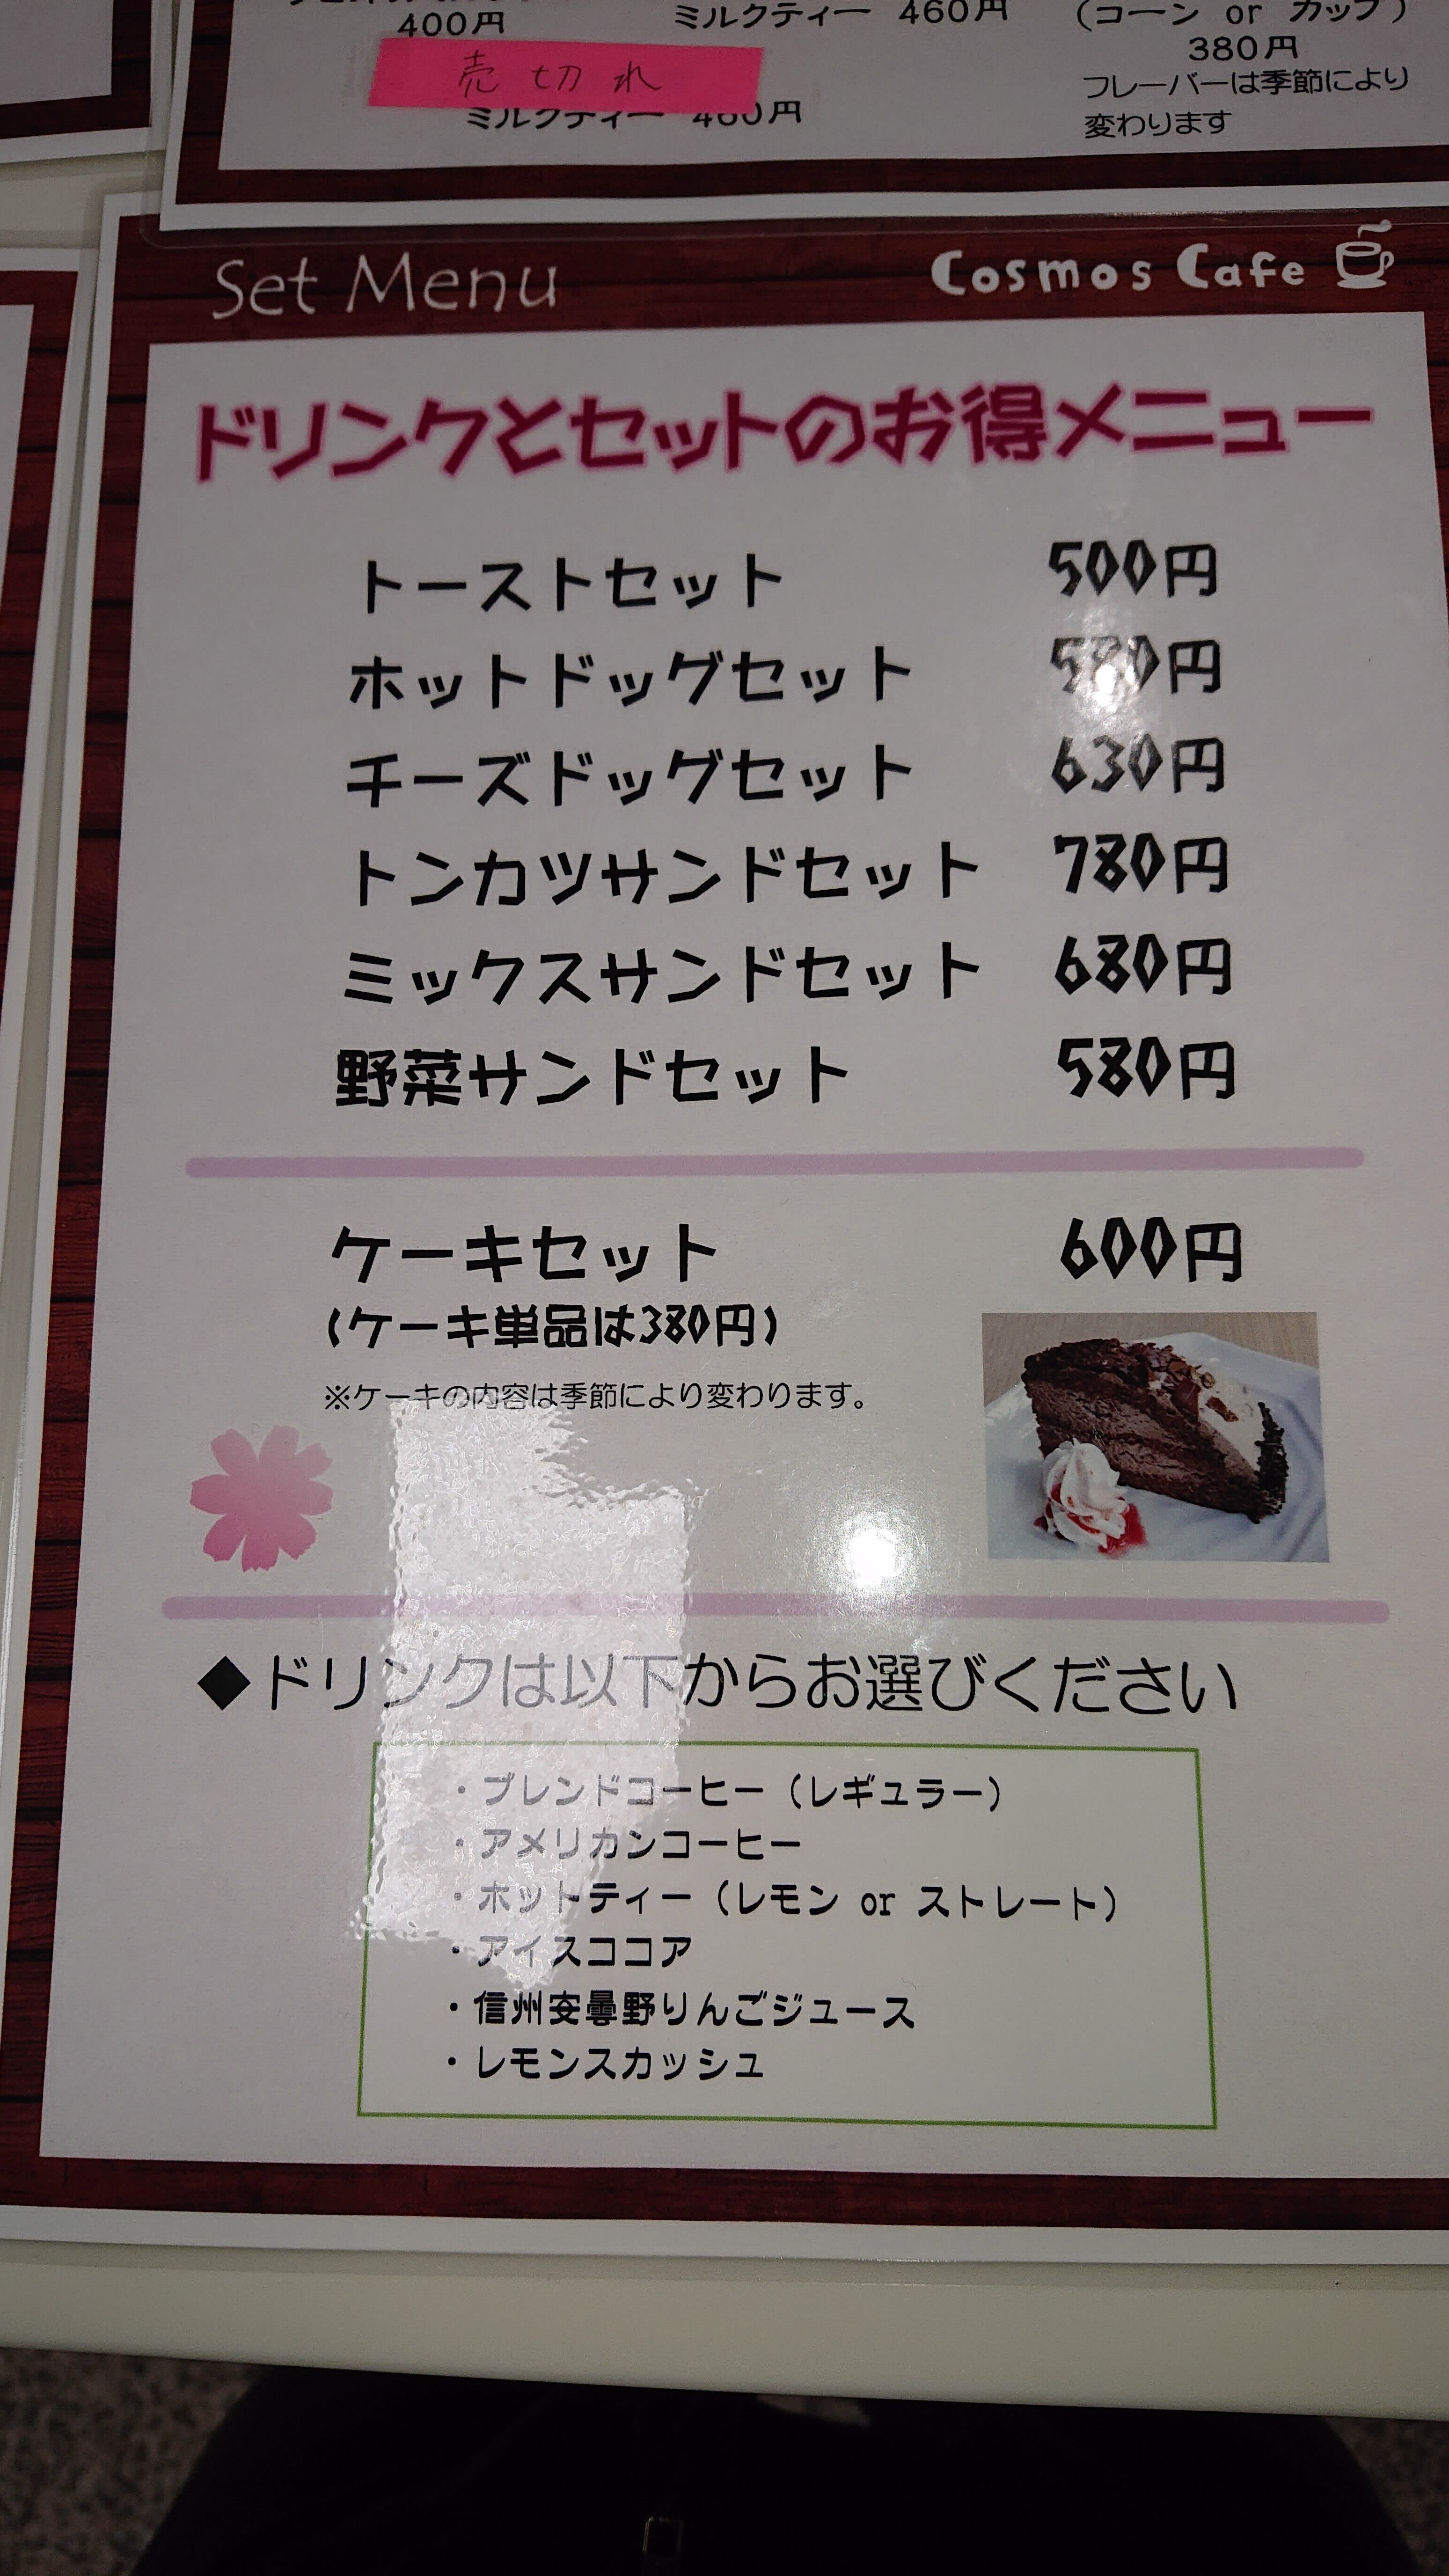 400円
ミルクティー 460円
(コーン or カップ)
380円
フレーバーは季節により
変わります
売切れ
ミルクティー 460円
Set Menu
Cosmos Cafe
ドリンクとセットのお得メニュー
トーストセット 500円
ホットドッグセット 580円
チーズドッグセット 630円
トンカツサンドセット 780円
ミックスサンドセット 680円
野菜サンドセット 580円
ケーキセット 600円
(ケーキ単品は380円)
※ケーキの内容は季節により変わります。
◆ドリンクは以下からお選びください
・ブレンドコーヒー(レギュラー)
・アメリカンコーヒー
・ホットティー(レモン or ストレート)
・アイスココア
・信州安曇野りんごジュース
・レモンスカッシュ